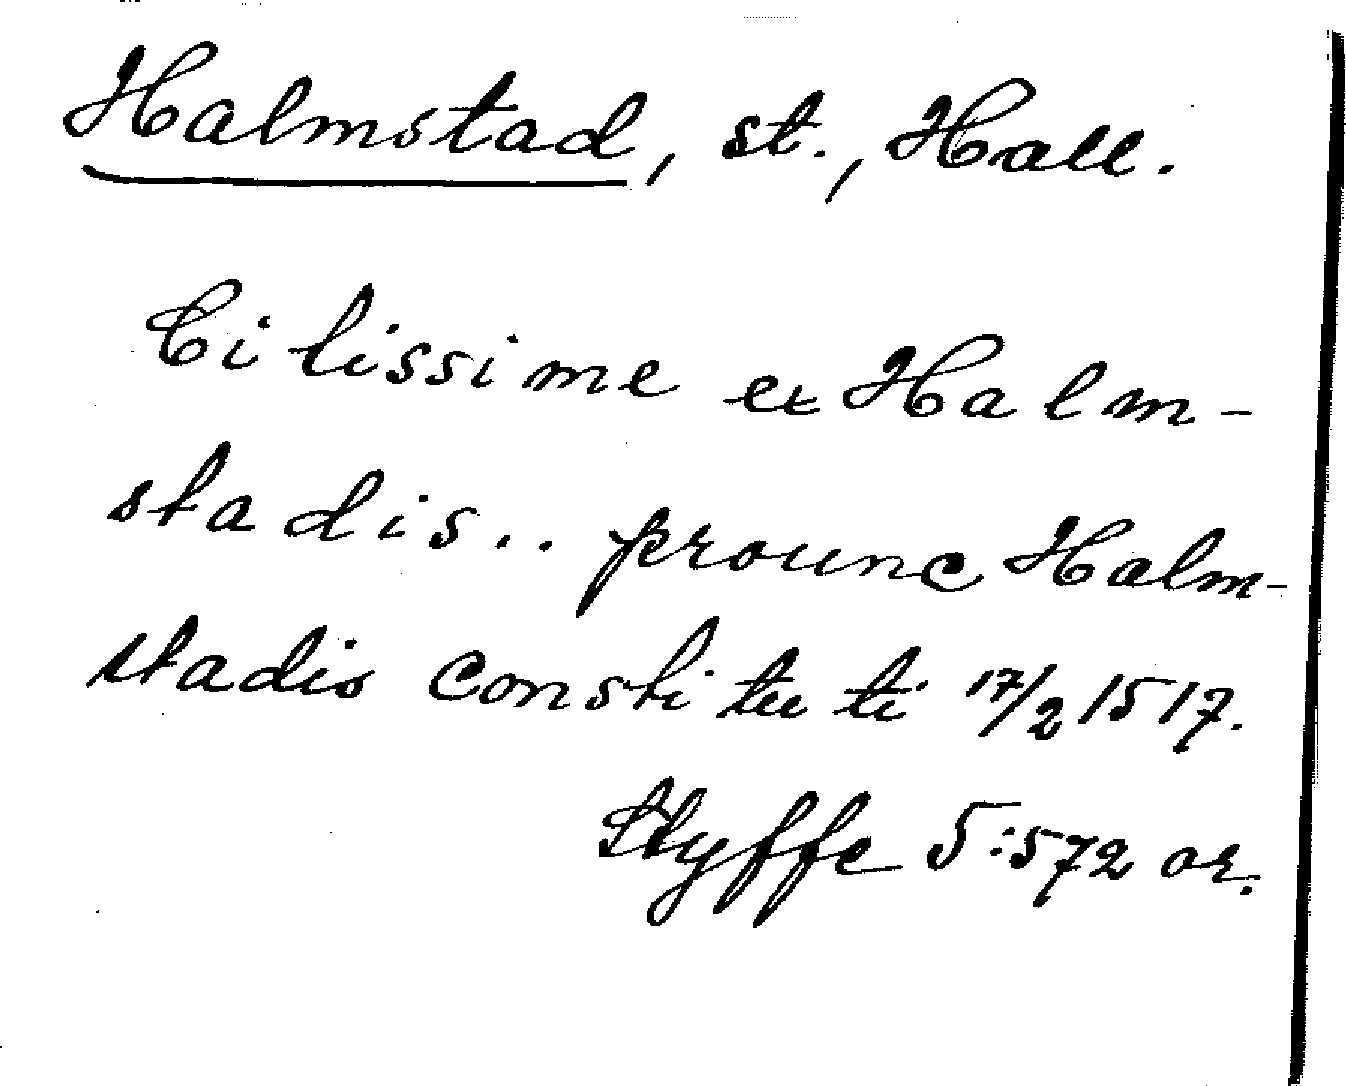 Halmstad, st., Hall.
Citissime ex Halm-
stadis.. pronunc Halm-
stadis constituti 17/2 1517.
Styffe 5:572 or.